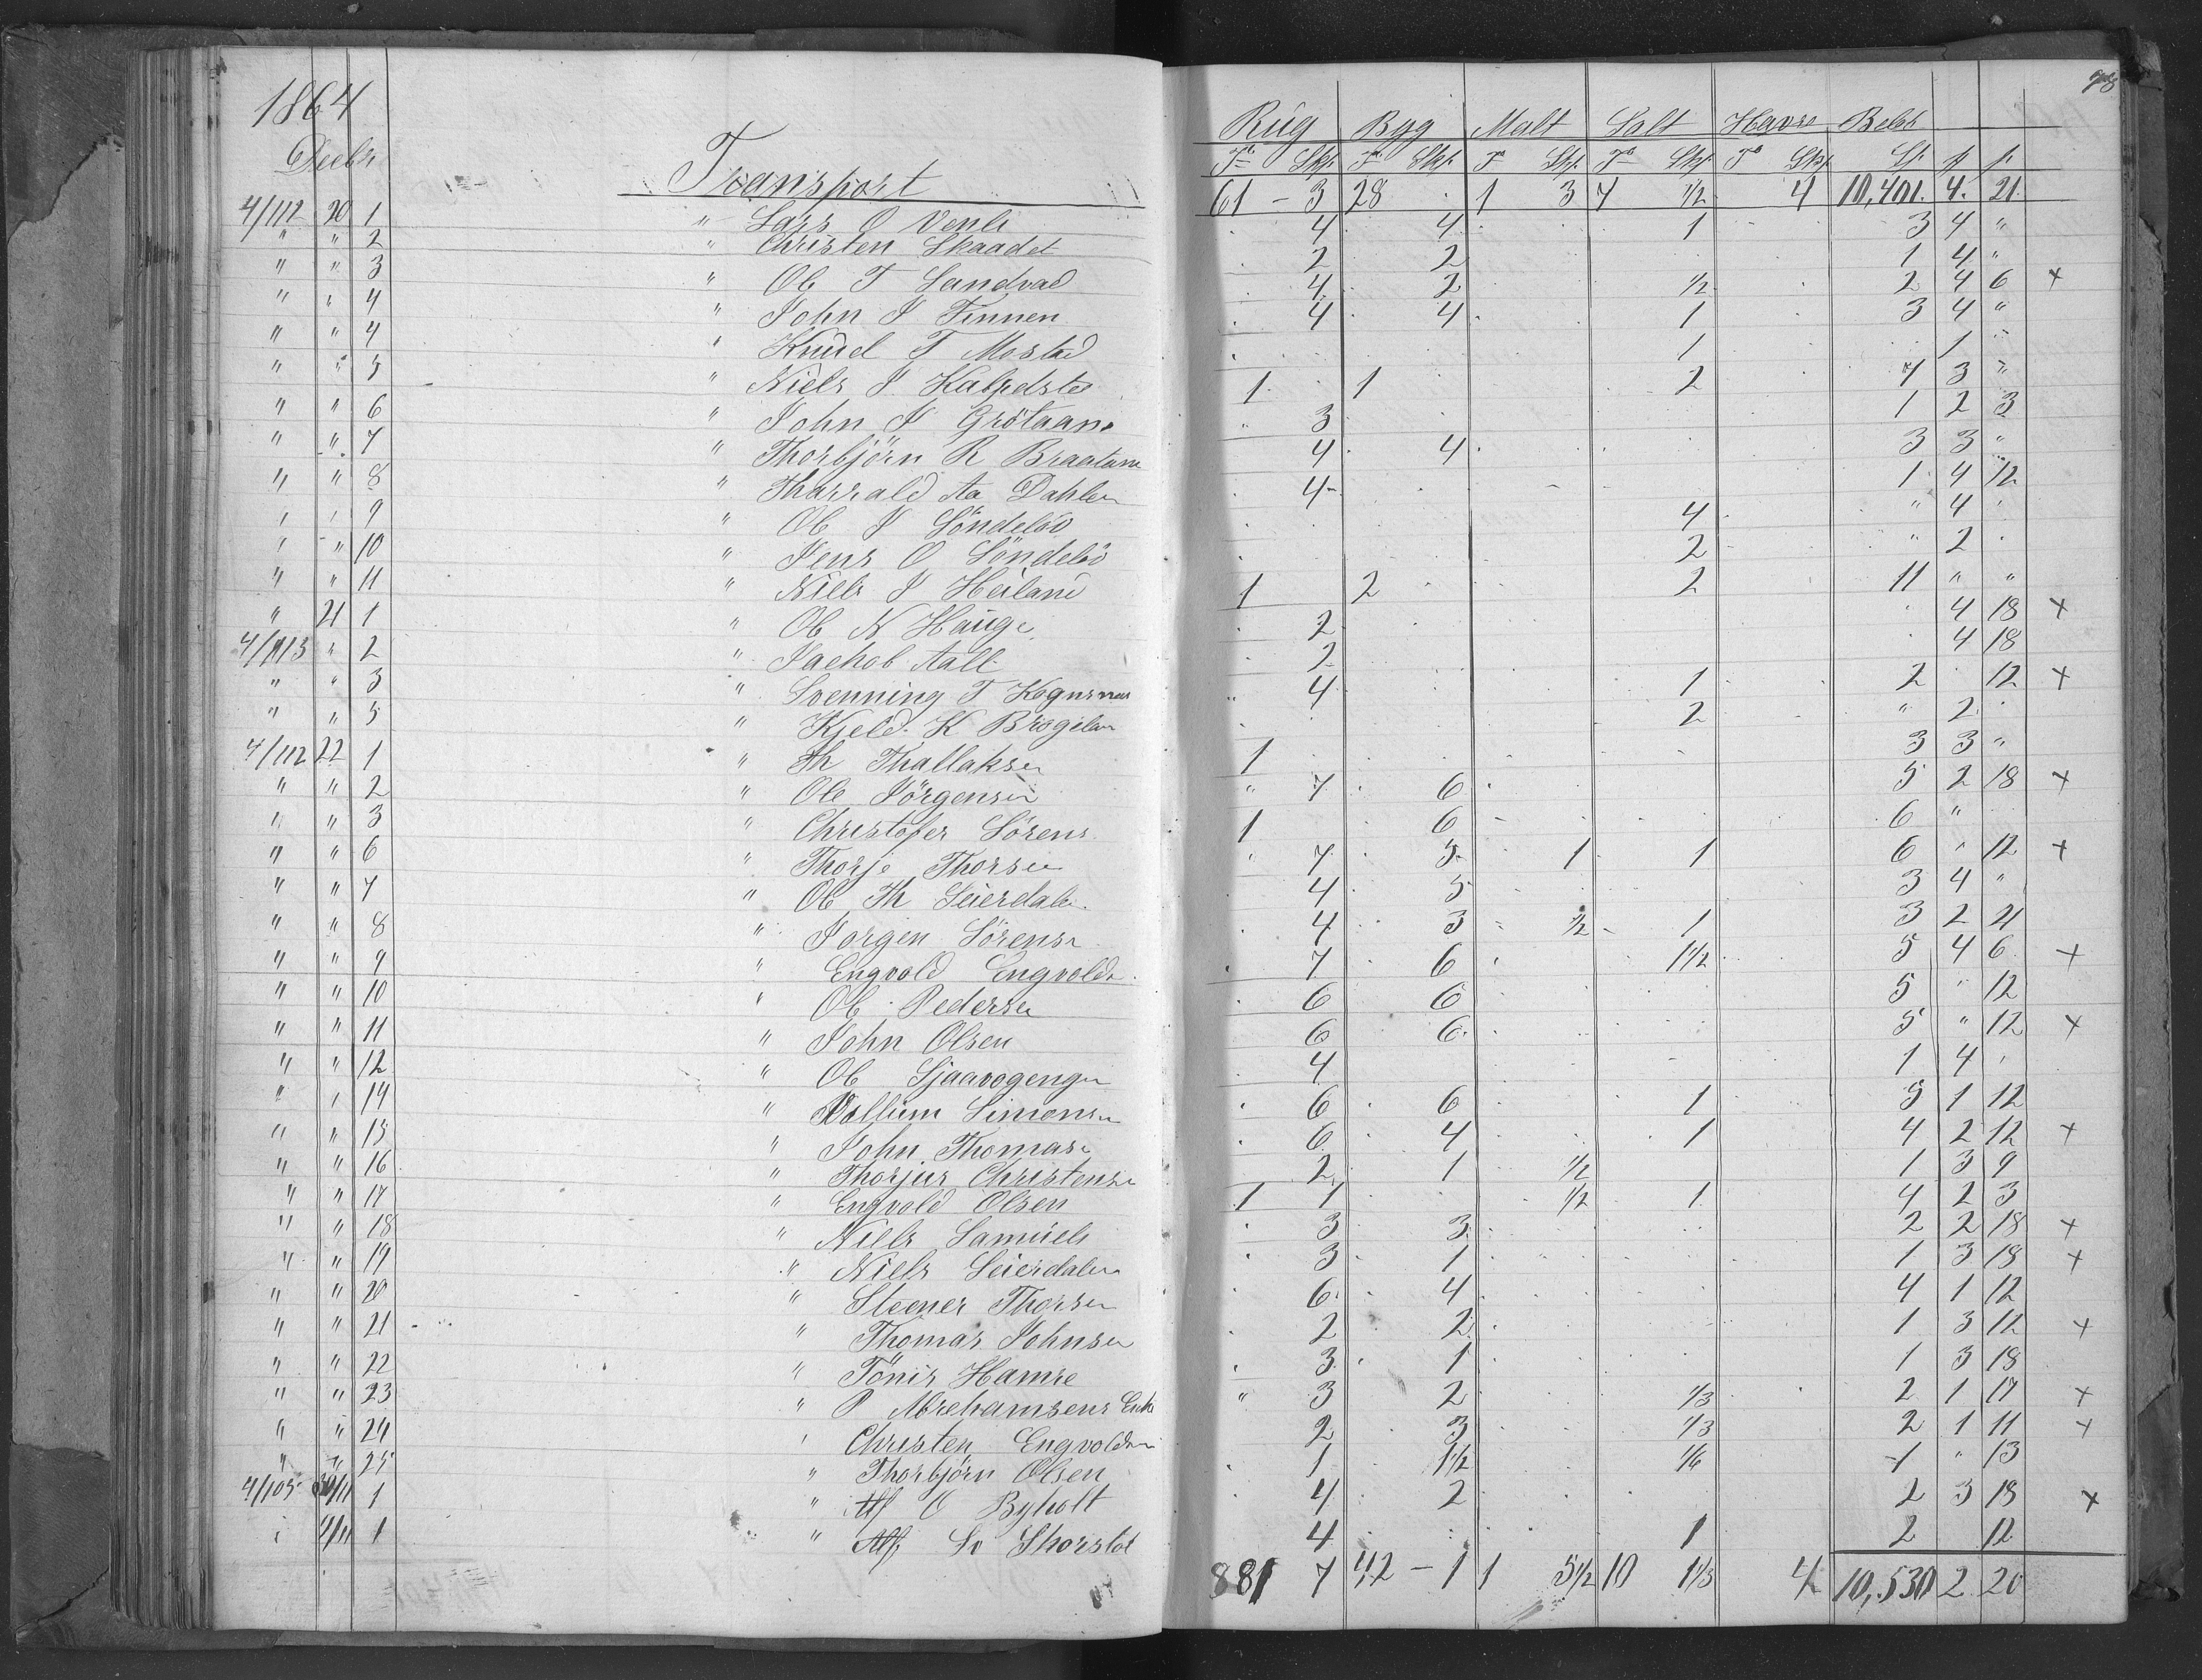 98
1864
Decbr
Rug Byg Malt Salt Havre Beløb
Tr Skp Tr Skp Tr Skp Tr Skp Tr Skp Sp. β β.
Transport 61 - 3 28 . 1 3 7 1/2 4 10,401. 4. 21.
4/112 20 1 " Lars O Venli 4 4 1 3 4 "
" " 2 " Christen Skaadet 2 2 1 4 "
" " 3 " Ole T Sandvad 4 2 1/2 2 4 6 +
" " 4 " John J Tinnen 4 4 1 3 4 "
" " 4 " Knud T Mostad 1 1 "
" " 5 " Niels J 1 1 2 7 3 "
" " 6 " John J Grötaan " 3 1 2 3
" " 7 " Thorbjörn R Braatane 4 4 3 3 "
" " 8 " Tharrald Aa Dahlen 4 1 4 12
" " 9 " Ole J Söndelöv 4 " 4
" " 10 " Jens O Söndelöv 2 " 2
" " 11 " Niels J Heiland 1 2 2 11 " "
" 21 1 " Ole N Hauge 2 4 18 +
4/113 " 2 " Jachob Aall 2 4 18
" " 3 " Svenning T " 4 1 2 12 +
" " 5 " Kjeld K 2 " 2
4/112 22 1 " Th Thallaksen 1 3 3 "
" " 2 " Ole Jörgensen " 7 6 5 2 18 +
" " 3 " Christofer Sörens 1 6 6 "
" " 6 " Thorje Thorsen 7 5 1 1 6 " 12 +
" " 7 " Ole Th Leierdalen 4 5 3 4 "
" " 8 " Jorgen Sörensn 4 3 1/2 1 3 2 21
" " 9 " Engvold Engvolds 7 6 1 1/2 5 4 6 +
" " 10 " Ole Pedersen 6 6 5 " 12
" " 11 " John Olsen 6 6 5 " 12 +
" " 12 " Ole Sjaavogengen 4 1 4
" " 14 " Vollum Simonsen 6 6 1 5 1 12
" " 15 " John Thomasn 6 4 1 4 2 12 +
" " 16 " Thorjus Christensn 2 1 1/2 1 3 9
" " 17 " Engvold Olsen 1 1 1/2 1 4 2 3
" " 18 " Niels Samuels 3 3 2 2 18 +
" " 19 " Niels Leierdalen 3 1 1 3 18 +
" " 20 " Steener Thorsen 6 4 4 1 12
" " 21 " Thomas Johnsen 2 2 1 3 12 +
" " 22 " Tönis Hamre 3 1 1 3 18
" " 23 " P Abrehamsens Enke " 3 2 1/3 2 1 17 +
" " 24 " Christen Engvoldsn 2 3 1/3 2 1 11 +
" " 25 " Thorbjörn Olsen 1 1 1/2 1/6 1 " 13
4/105 30/11 1 " Alf O Byholt 4 2 2 3 18 +
" 4/11 1 " Alf Sv Skorstol 4 1 2 12
881 7 42 - 1 1 5 1/2 10 1 1/3 4 10,530 2 20